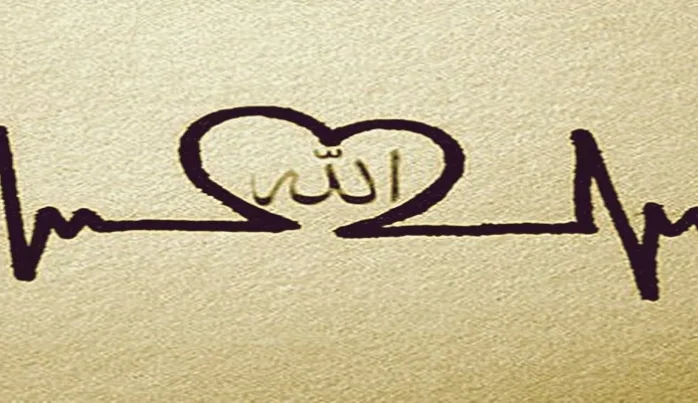 اللّه